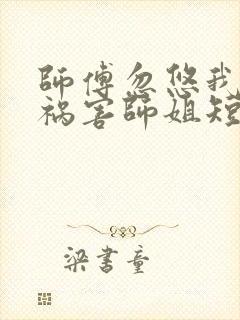 師傅忽悠我
禍害師姐短
梁書童